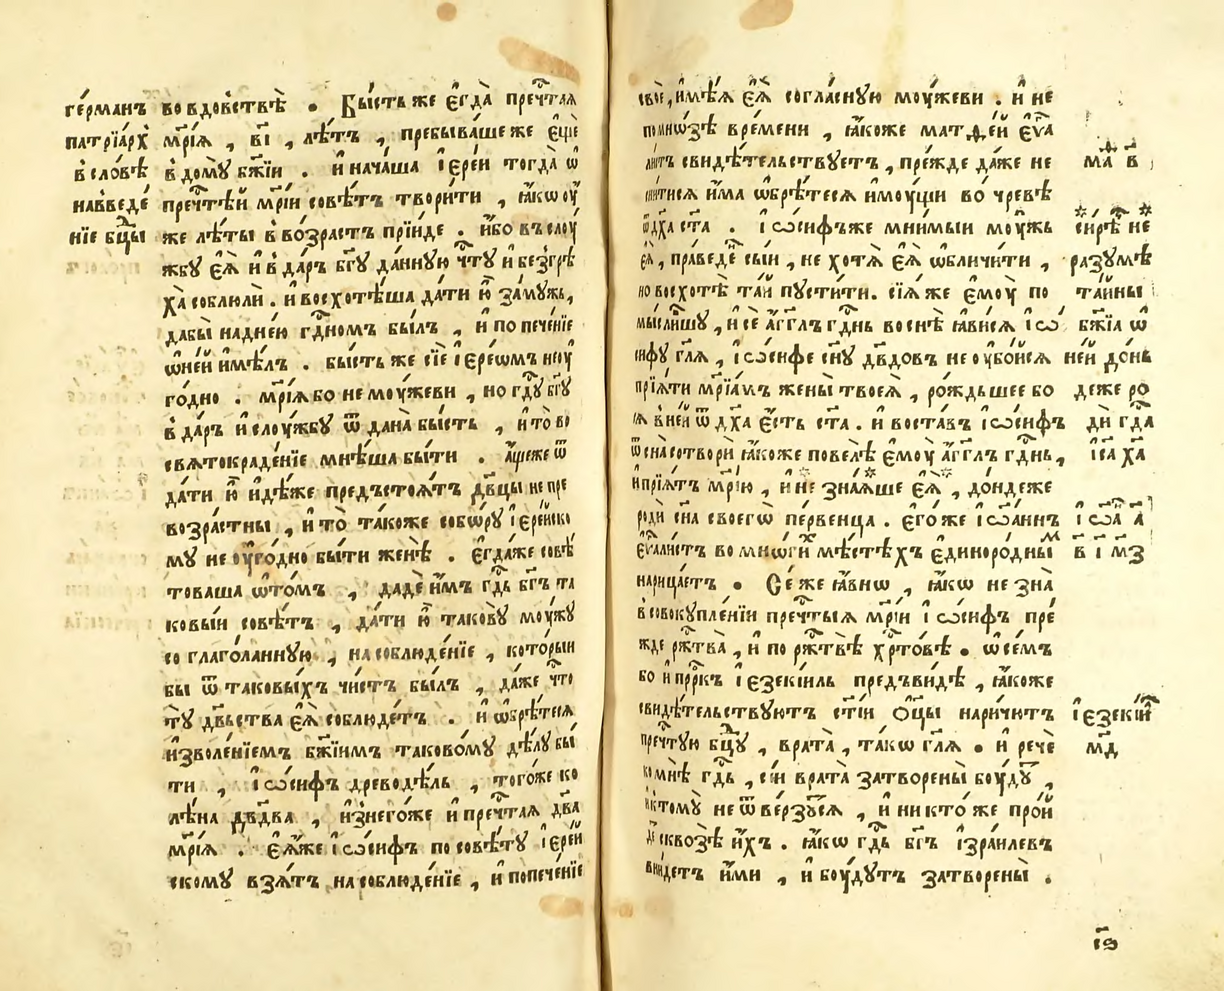 ге́рманъ
патрїа́рхъ
в̾ сло́вѣ
на в̾веде́
нїе бцⷣы
во вдо́вствѣ . Бы́сть же є҆гда̀ пречⷭ҇таѧ
мр҃і́ѧ , в҃і , лѣ́тъ , пребыва́ше же є҆щѐ
в̾ до́мꙋ бж҃їи . и҆ нача́ша і҆ере́и тогда̀ ѿ
пречⷭ҇тѣй мр҃і́и совѣ́тъ твори́ти , ꙗ҆́кѡ оу҆
же лѣ́ты в̾ во́зрастъ прїи́де . и҆́бо въ слоу́
жбꙋ є҆ѧ̀ и҆ в̾ да́ръ бг҃ꙋ да́ннꙋю чⷭ҇тꙋ и҆ без̾грѣ
ха̀ соблюлѝ . и҆ восхотѣ́ша да́ти ю҆̀ за́мꙋжь,
дабы̀ над̾не́ю гⷭ҇дномъ бы́лъ , и҆ по пече́нїе
ѡ҆ не́й и҆мѣ́лъ . бы́сть же сїѐ і҆ере́ѡмъ не оу҆
го́дно . мр҃і́ѧ бо не моу́жеви , но гдⷭ҇ꙋ бг҃ꙋ
в̾ да́ръ и҆ слоу́жбꙋ ѿ дана̀ бы́сть , и҆ то̀ во
свѧтокраде́нїе мнѣ́ша бы́ти . а҆́ще же ѿ
да́ти ю҆̀ и҆дѣ́же пред̾стоѧ́тъ двⷭ҇цы не пре
возра́стны , и҆ то̀ та́коже собо́рꙋ і҆ере́йско
мꙋ не оу҆го́дно бы́ти женѣ̀ . є҆гда́же совѣ́
товаша ѡ҆ то́мъ , дадѐ и҆̀мъ гдⷭ҇ь бг҃ъ та
ковы́и совѣ́тъ , да́ти ю҆̀ тако́вꙋ моу́жꙋ
со глаго́ланнꙋю , на соблюде́нїе , кото́рыи
бы ѿ таковы́хъ чи́стъ бы́лъ , да́же чⷭ҇то
тꙋ̀ двⷭ҇ьства є҆ѧ̀ соблюде́тъ . и҆ ѡ҆брѣ́тесѧ
и҆зволе́нїемъ бж҃їимъ тако́вомꙋ дѣ́лꙋ бы́
ти , і҆ѡ́сифъ древодѣ́ль , того́же ко
лѣ́на дв҃два , и҆з̾ него́же и҆ пречⷭ҇таѧ дв҃а
мр҃і́ѧ . є҆ѧ́же і҆ѡ́сифъ по совѣ́тꙋ і҆ере́й
скомꙋ взѧ́тъ на соблюде́нїе , и҆ попече́нїе
своѐ, и҆мѣ́ѧ є҆ѧ̀ согла́снꙋю моу́жеви . и҆ не
по мно́зѣ вре́мени , ꙗ҆́коже матѳе́й є҆ѵⷢ҇а
ли́стъ свидѣ́тельствꙋетъ , пре́жде да́же не
сни́тисѧ и҆́ма ѡ҆брѣ́тесѧ и҆моу́щи во чре́вѣ
ѿ дх҃а ст҃а . і҆ѡ́сифъже мни́мыи моу́жь
є҆ѧ̀, пра́веденъ сы́и , не хотѧ̀ є҆ѧ̀ ѡ҆бличи́ти ,
но восхотѣ̀ та́й пꙋсти́ти. сїѧ́ же є҆моу̀ по
мы́слившꙋ , и҆ сѐ а҆́гг҃лъ гдⷭ҇нь во снѣ̀ ꙗ҆ви́сѧ і҆ѡ́
сифꙋ гл҃ѧ , і҆ѡ́сифе сн҃ꙋ дв҃довъ не оу҆бо́йсѧ
прїѧ́ти мр҃іа́мъ жены̀ твоеѧ̀ , ро́ждьшее бо
сѧ в̾ не́й ѿ дх҃а є҆́сть ст҃а . и҆ воста́въ і҆ѡ́сифъ
ѿ сна̀ сотворѝ ꙗ҆́коже повелѣ̀ є҆моу̀ а҆́гг҃лъ гдⷭ҇нь,
и҆ прїѧ́тъ мр҃і́ю , и҆ не зна́ѧше є҆ѧ̀ , до́ндеже
родѝ сн҃а своего̀ пе́рвенца . є҆го́же і҆ѡа́ннъ
є҆ѵⷢ҇али́стъ во мно́гихъ мѣ́стѣхъ є҆диноро́дныⷨ
нарица́етъ . Се́ же ꙗ҆́внѡ , ꙗ҆́кѡ не зна̀
в̾ совокꙋпле́нїи пречⷭ҇тыѧ мр҃і́и і҆ѡ́сифъ пре́
жде ржⷭ҇тва̀ , и҆ по ржⷭ҇твѣ̀ хрⷭ҇то́вѣ . ѡ҆ се́мъ
бо и҆ прⷪ҇ркъ і҆езекі́иль пред̾ви́дѣ , ꙗ҆́коже
свидѣ́тельствꙋютъ ст҃їи Ѻ҆ц҃ы̀ нарича́ютъ
пречⷭ҇тꙋю бцⷣꙋ , врата̀ , та́кѡ гл҃ѧ . и҆ речѐ
ко мнѣ̀ гдⷭ҇ь , сїи́ врата̀ затворены̀ боу́дꙋⷮ ,
и҆ к̾томꙋ̀ не ѿве́рзꙋтсѧ , и҆ никто́же про́й
де сквозѣ̀ и҆́хъ . ꙗ҆́кѡ гдⷭ҇ь бг҃ъ і҆зра́илевъ
вни́детъ и҆́ми , и҆ боу́дꙋтъ затворены̀ .
ма в҃
си́рѣ не
разꙋмѣ̀
та́йны
бж҃їа ѡ҆
не́й до́нь
деже ро
дѝ гдⷭ҇а
і҆са х҃а
і҆ѡа а҃
в҃ і҃ м҃з
і҆езекі́ил
м҃д
і҃ѳ